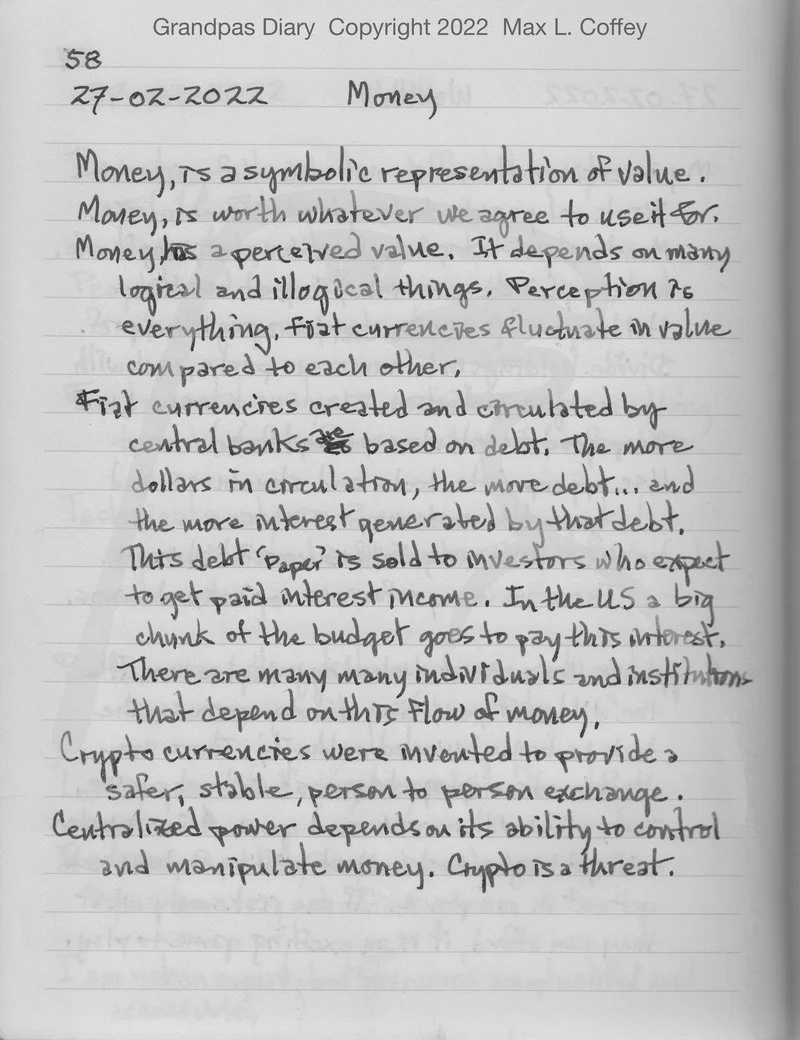 Grandpas Diary Copyright 2022 Max L. Coffey
58
27-02-2022 Money
Money, is a symbolic representation of value.
Money, is worth whatever we agree to use it for.
Money has a perceived value. It depends on many
logical and illogical things. Perception is
everything. Fiat currencies fluctuate in value
compared to each other.
Fiat currencies created and circulated by
central banks are based on debt. The more
dollars in circulation, the more debt... and
the more interest generated by that debt.
This debt 'paper' is sold to investors who expect
to get paid interest income. In the US a big
chunk of the budget goes to pay this interest.
There are many many individuals and institutions
that depend on this flow of money.
Crypto currencies were invented to provide a
safer, stable, person to person exchange.
Centralized power depends on its ability to control
and manipulate money. Crypto is a threat.